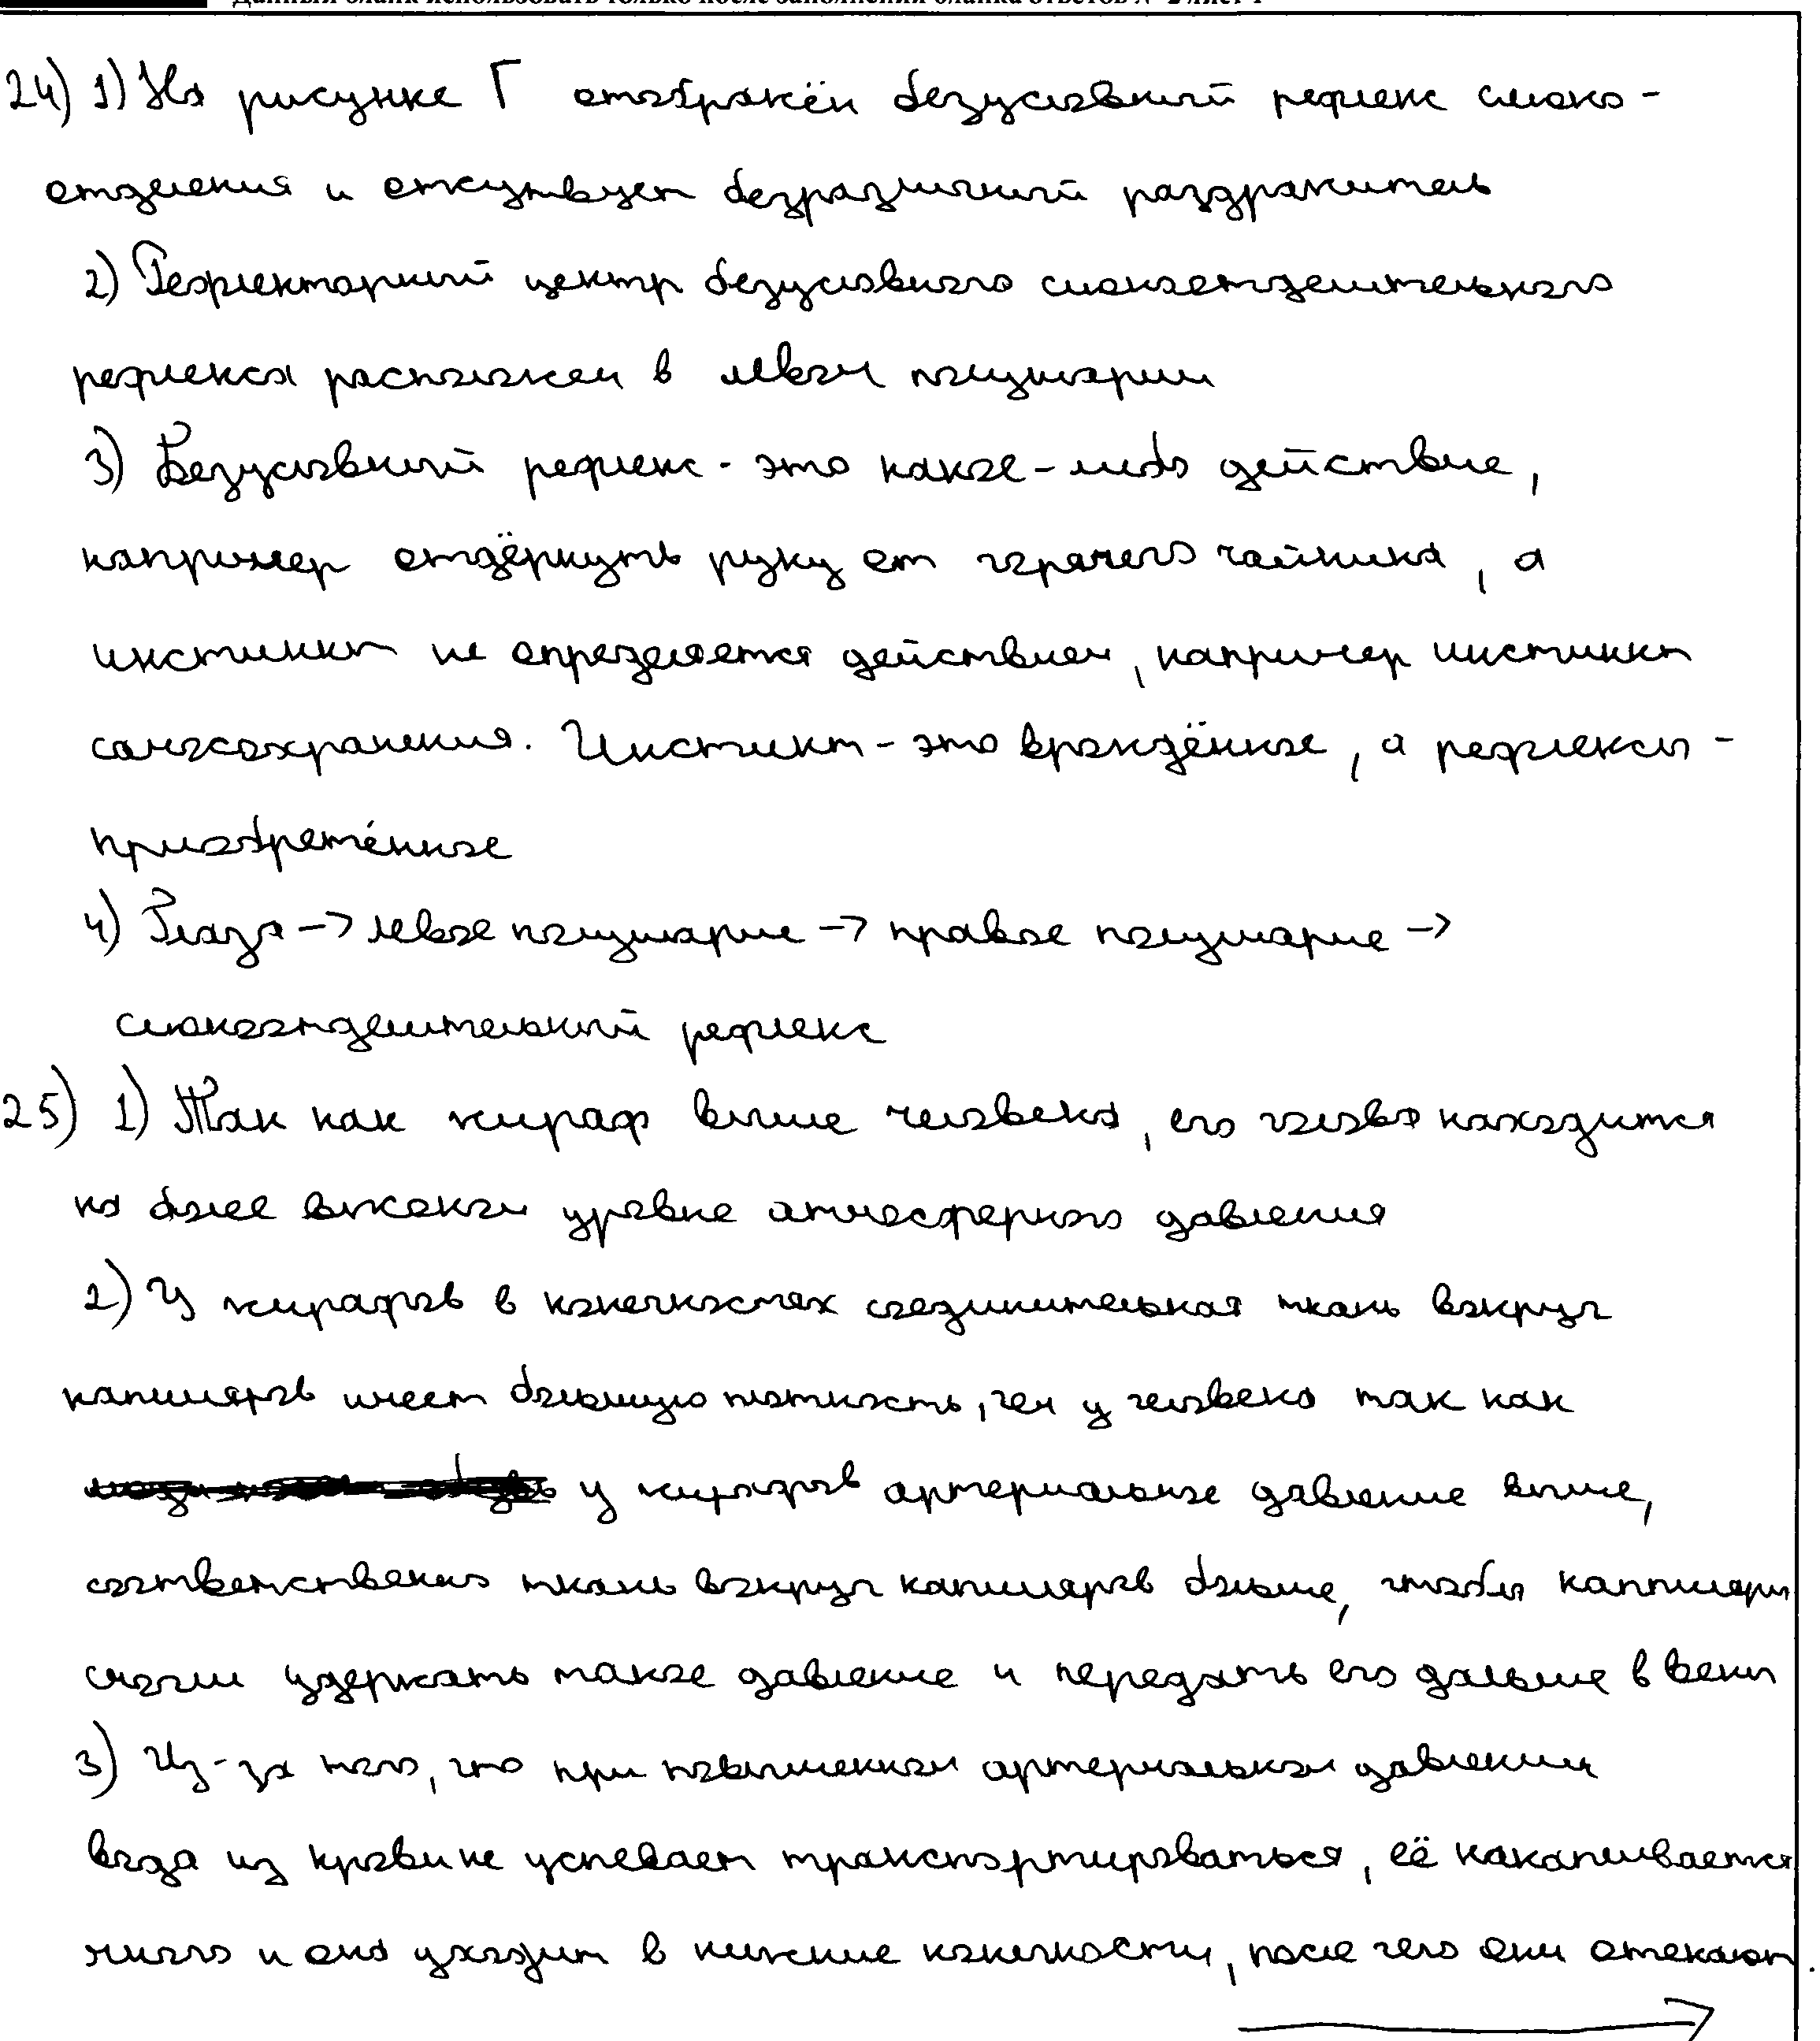 Данный бланк использовать только после заполнения бланка ответов № 2 лист 1
24) 1) На рисунке Г отображён безусловный рефлекс слюно-
отделения и отсутвует безразличный раздражитель
2) Рефлекторный центр безусловного слюноотделительного
рефлекса расположен в левом полушарии
3) Безусловный рефлекс - это какое-либо действие,
например отдёрнуть руку от горячего чайника, а
инстинкт не определяется действием, например инстинкт
самосохранения. Инстинкт - это врождённое, а рефлексы -
приобретённое
4) Глаза -> левое полушарие -> правое полушарие ->
слюноотделительный рефлекс
25) 1) Так как жираф выше человека, его голова находится
на более высоком уровне атмосферного давления
2) У жирафов в конечностях соединительная ткань вокруг
капилляров имеет большую плотность, чем у человека так как
у жирафов артериальное давление выше,
соответственно ткань вокруг капилляров больше, чтобы капилляры
смогли удержать такое давление и передать его дальше в вены
3) Из-за того, что при повышенном артериальном давлении
вода из крови не успевает транспортироваться, её накапливается
много и она уходит в нижние конечности, после чего они отекают.